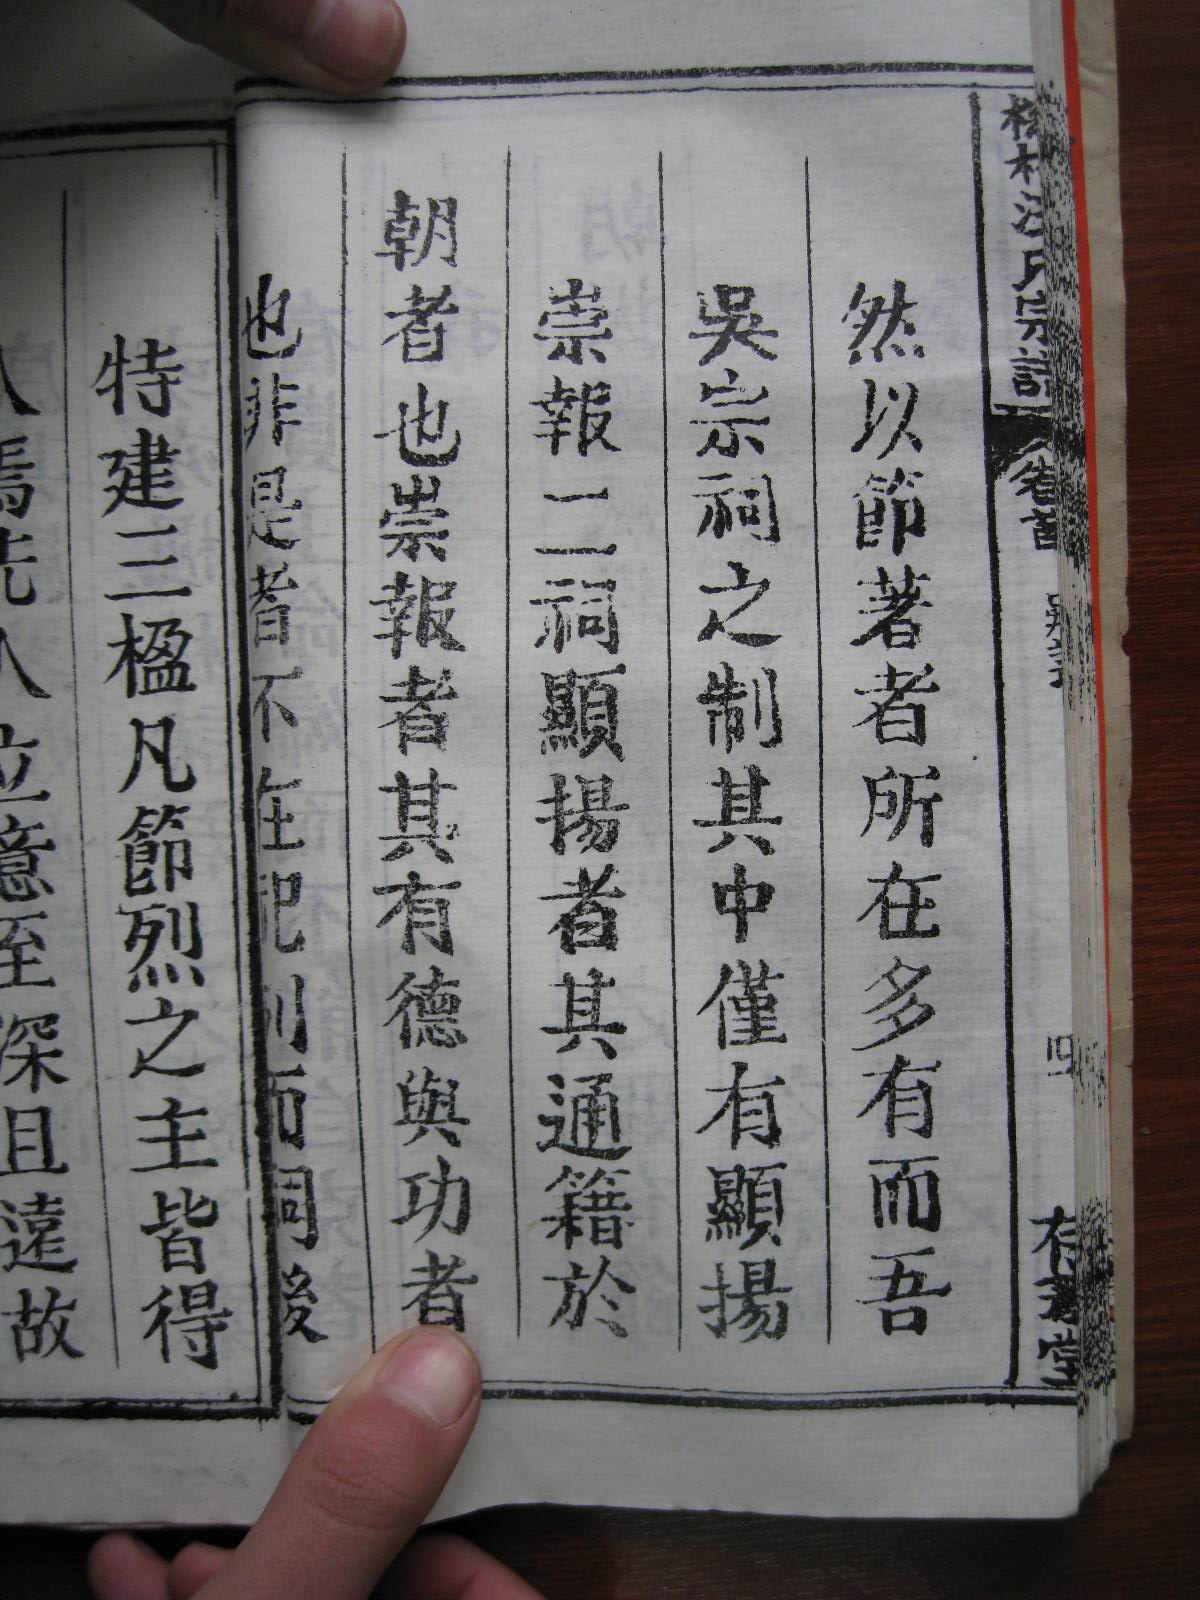 氏宗譜
卷首
四
然以節著者所在多有而吾
吳宗祠之制其中僅有顯揚
崇報二祠顯揚者其通籍於
朝者也崇報者其有德與功者
也非是者不在祀列而祠後
特建三楹凡節烈之主皆得
入焉先人立意至深且遠故